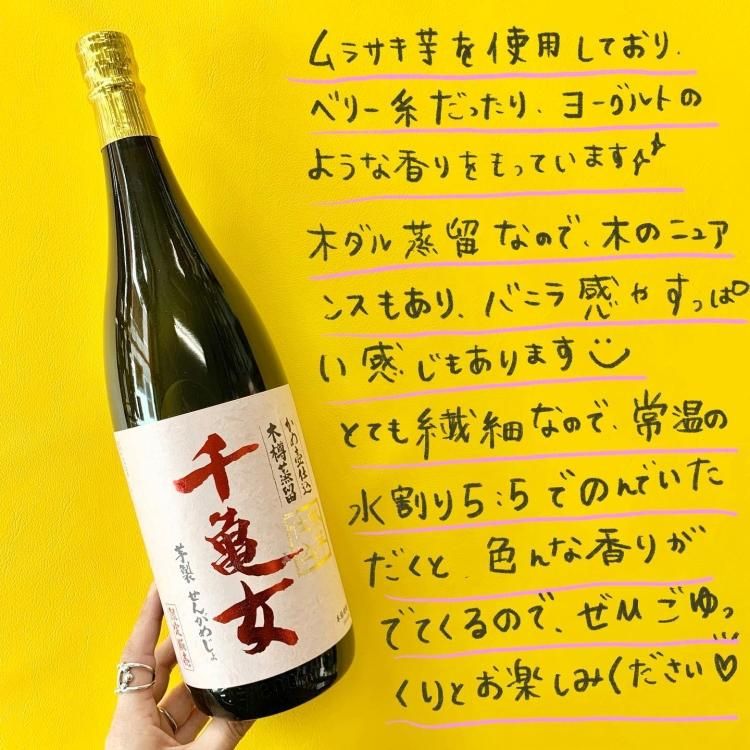 ムラサキ芋を使用しており、
ベリー系だったり、ヨーグルトの
ような香りをもっています
木ダル蒸留なので、木のニュア
ンスもあり、バニラ感やすっぱ
い感じもあります
とても繊細なので、常温の
水割り5:5でのんでいた
だくと、色んな香りが
でてくるので、ぜひごゆっ
くりとお楽しみください♡
かめ壺仕込
木樽蒸留
千亀女
芋製 せんがめじょ